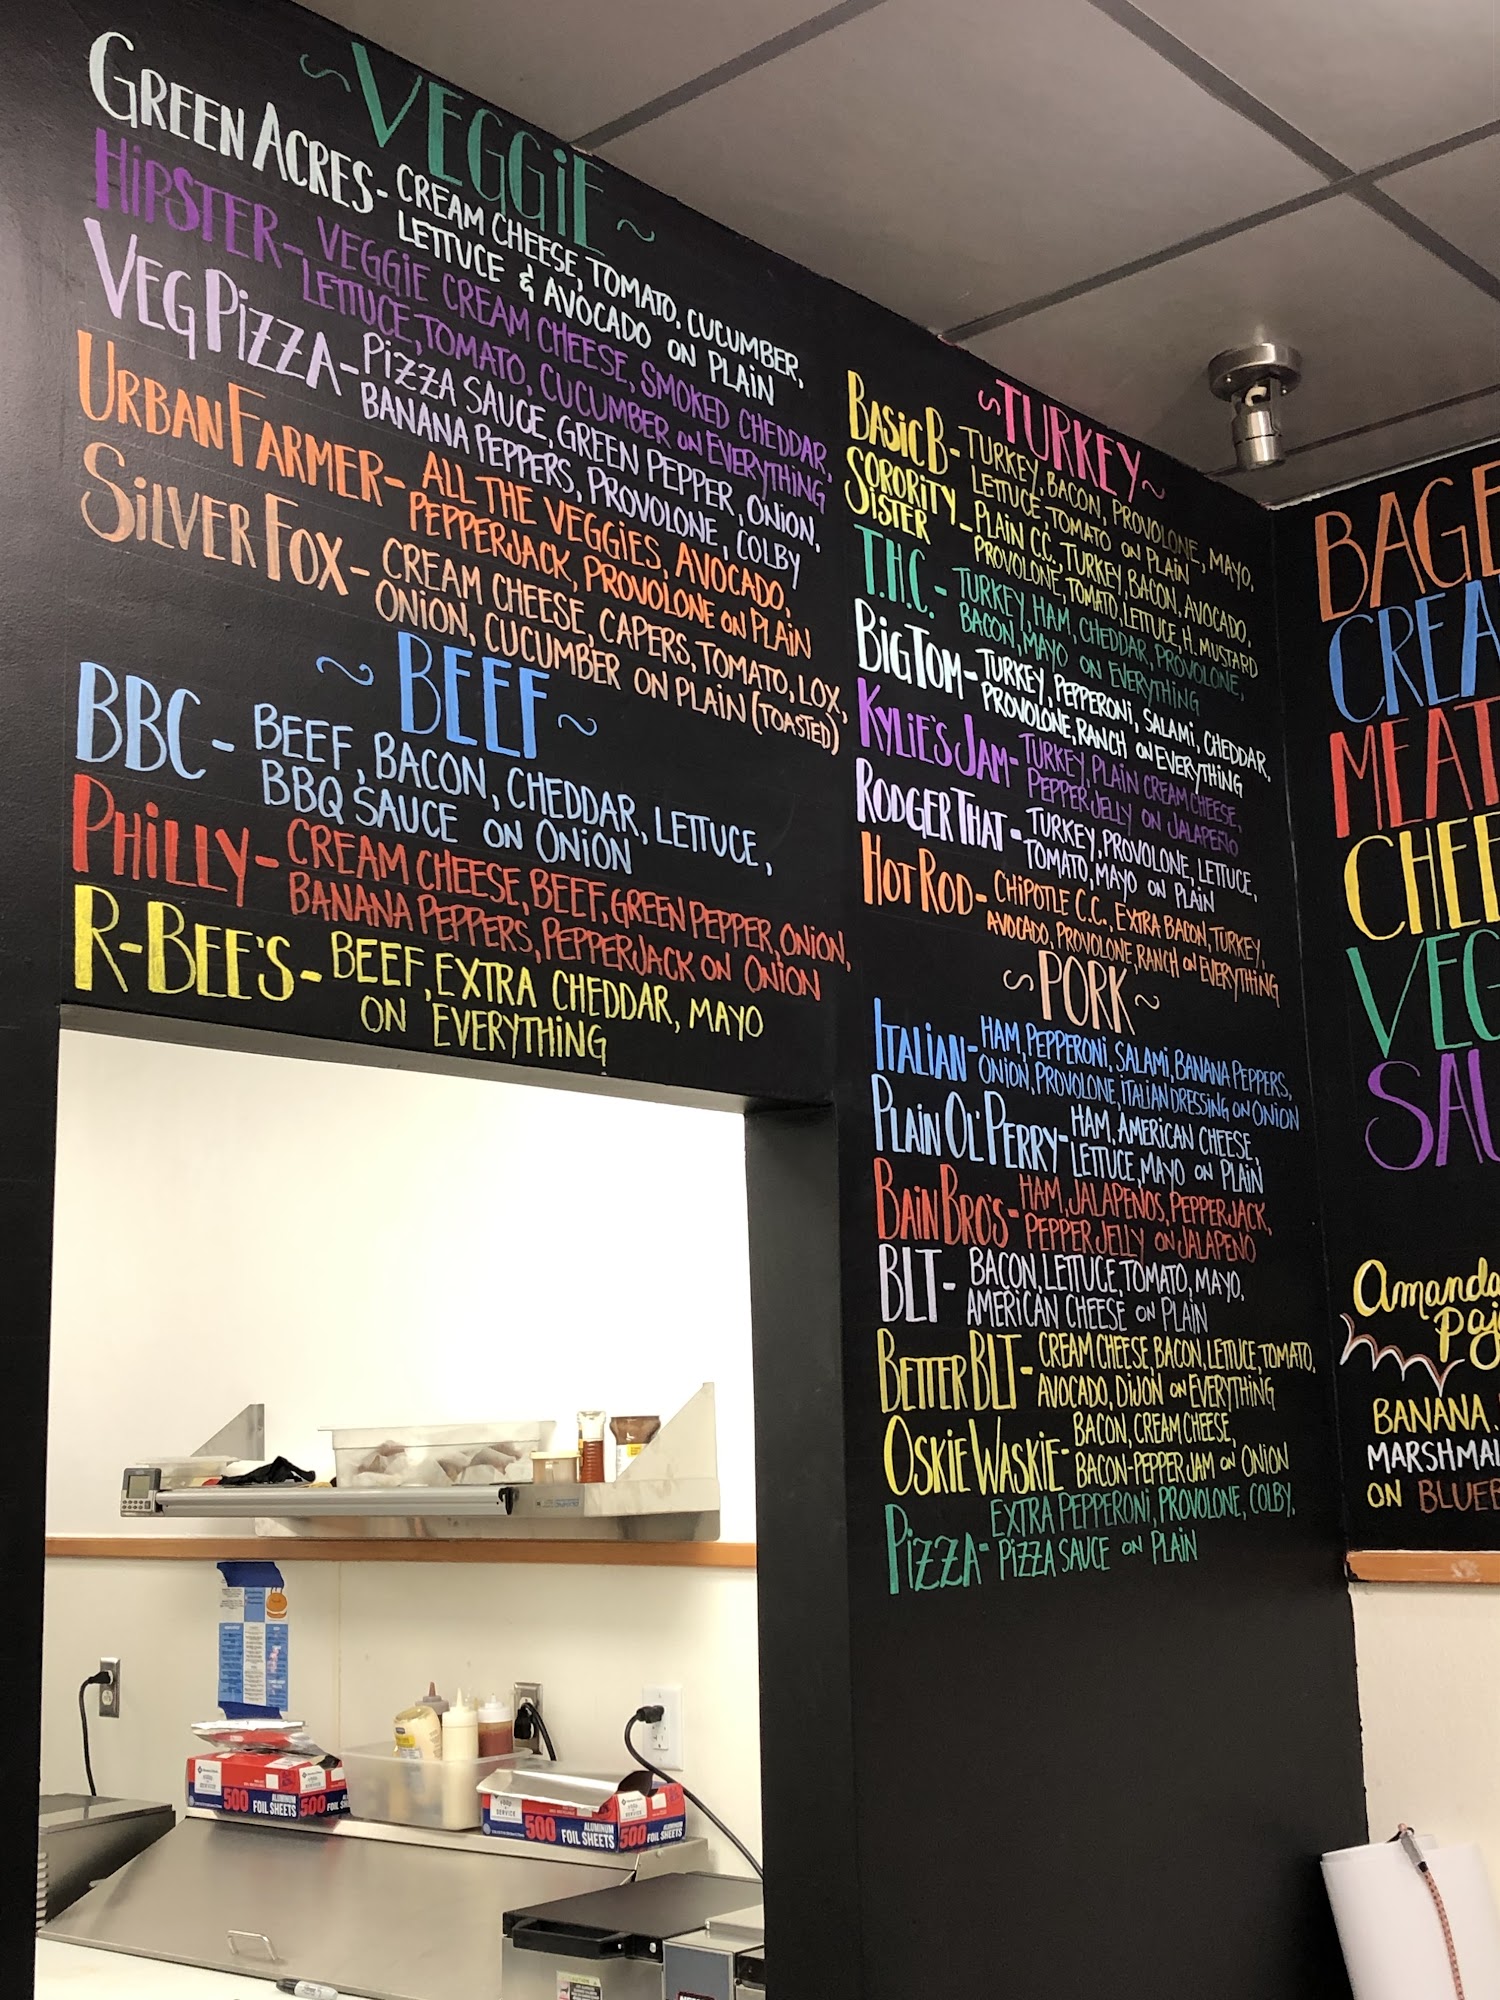 ~VEGGiE~
GREEN ACRES- CREAM CHEESE, TOMATO, CUCUMBER,
LETTUCE & AVOCADO ON PLAIN
HiPSTER- VEGGIE CREAM CHEESE, SMOKED CHEDDAR,
LETTUCE, TOMATO, CUCUMBER ON EVERYTHING
VEG PiZZA- PiZZA SAUCE, GREEN PEPPER, ONION,
BANANA PEPPERS, PROVOLONE, COLBY
URBAN FARMER- ALL THE VEGGIES, AVOCADO,
PEPPERJACK, PROVOLONE ON PLAiN
SiLVER FOX- CREAM CHEESE, CAPERS, TOMATO, LOX,
ONION, CUCUMBER ON PLAIN (TOASTED)
~BEEF~
BBC- BEEF, BACON, CHEDDAR, LETTUCE,
BBQ SAUCE ON ONION
PHiLLY- CREAM CHEESE, BEEF, GREEN PEPPER, ONION,
BANANA PEPPERS, PEPPERJACK ON ONION
R-BEE'S- BEEF, EXTRA CHEDDAR, MAYO
ON EVERYTHING
~TURKEY~
BASIC B- TURKEY, BACON, PROVOLONE, MAYO,
LETTUCE, TOMATO ON PLAIN
SORORITY SISTER- PLAIN C.C., TURKEY, BACON, AVOCADO,
PROVOLONE, TOMATO, LETTUCE, H. MUSTARD
T.H.C.- TURKEY, HAM, CHEDDAR, PROVOLONE,
BACON, MAYO ON EVERYTHING
BIG TOM- TURKEY, PEPPERONI, SALAMI, CHEDDAR,
PROVOLONE, RANCH ON EVERYTHING
KYLIE'S JAM- TURKEY, PLAIN CREAM CHEESE,
PEPPER JELLY ON JALAPEÑO
RODGER THAT- TURKEY, PROVOLONE, LETTUCE,
TOMATO, MAYO ON PLAIN
HOT ROD- CHIPOTLE C.C., EXTRA BACON, TURKEY,
AVOCADO, PROVOLONE, RANCH ON EVERYTHING
~PORK~
ITALIAN- HAM, PEPPERONI, SALAMI, BANANA PEPPERS,
ONION, PROVOLONE, ITALIAN DRESSING ON ONION
PLAIN OL' PERRY- HAM, AMERICAN CHEESE,
LETTUCE, MAYO ON PLAIN
BAIN BRO'S- HAM, JALAPEÑOS, PEPPERJACK,
PEPPER JELLY ON JALAPEÑO
BLT- BACON, LETTUCE, TOMATO, MAYO,
AMERICAN CHEESE ON PLAIN
BETTER BLT- CREAM CHEESE, BACON, LETTUCE, TOMATO,
AVOCADO, DIJON ON EVERYTHING
OSKIE WASKIE- BACON, CREAM CHEESE,
BACON-PEPPER JAM ON ONION
PiZZA- EXTRA PEPPERONI, PROVOLONE, COLBY,
PiZZA SAUCE ON PLAIN
BAGE
CREA
MEAT
CHEE
VEG
SAU
Amanda
Paj
BANANA,
MARSHMAL
ON BLUEB
500 ALUMINUM FOIL SHEETS 500
500 ALUMINUM FOIL SHEETS 500